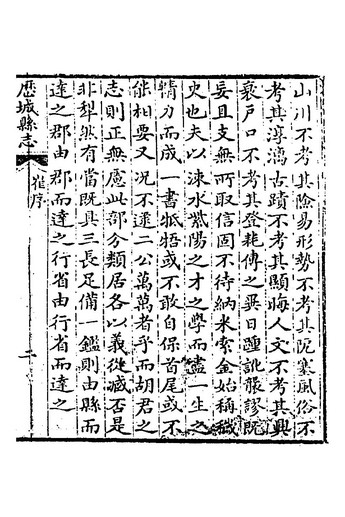 山川不考其險易形勢不考其阨塞風俗不
考其淳漓古蹟不考其顯晦人文不考其興
衰戶口不考其登耗傳之異日踵訛襲謬旣
妄且支無所取信固不待納米索金始稱穢
史也夫以涑水紫陽之才之學而盡一生之
精力而成一書牴牾或不敢自保首尾或不
能相要又况不逮二公萬萬者乎而胡君之
志則正無慮此部分類居各以義從臧否是
非犁然有當旣具三長足備一鑑則由縣而
達之郡由郡而達之行省由行省而達之
歷城縣志
崔序
二